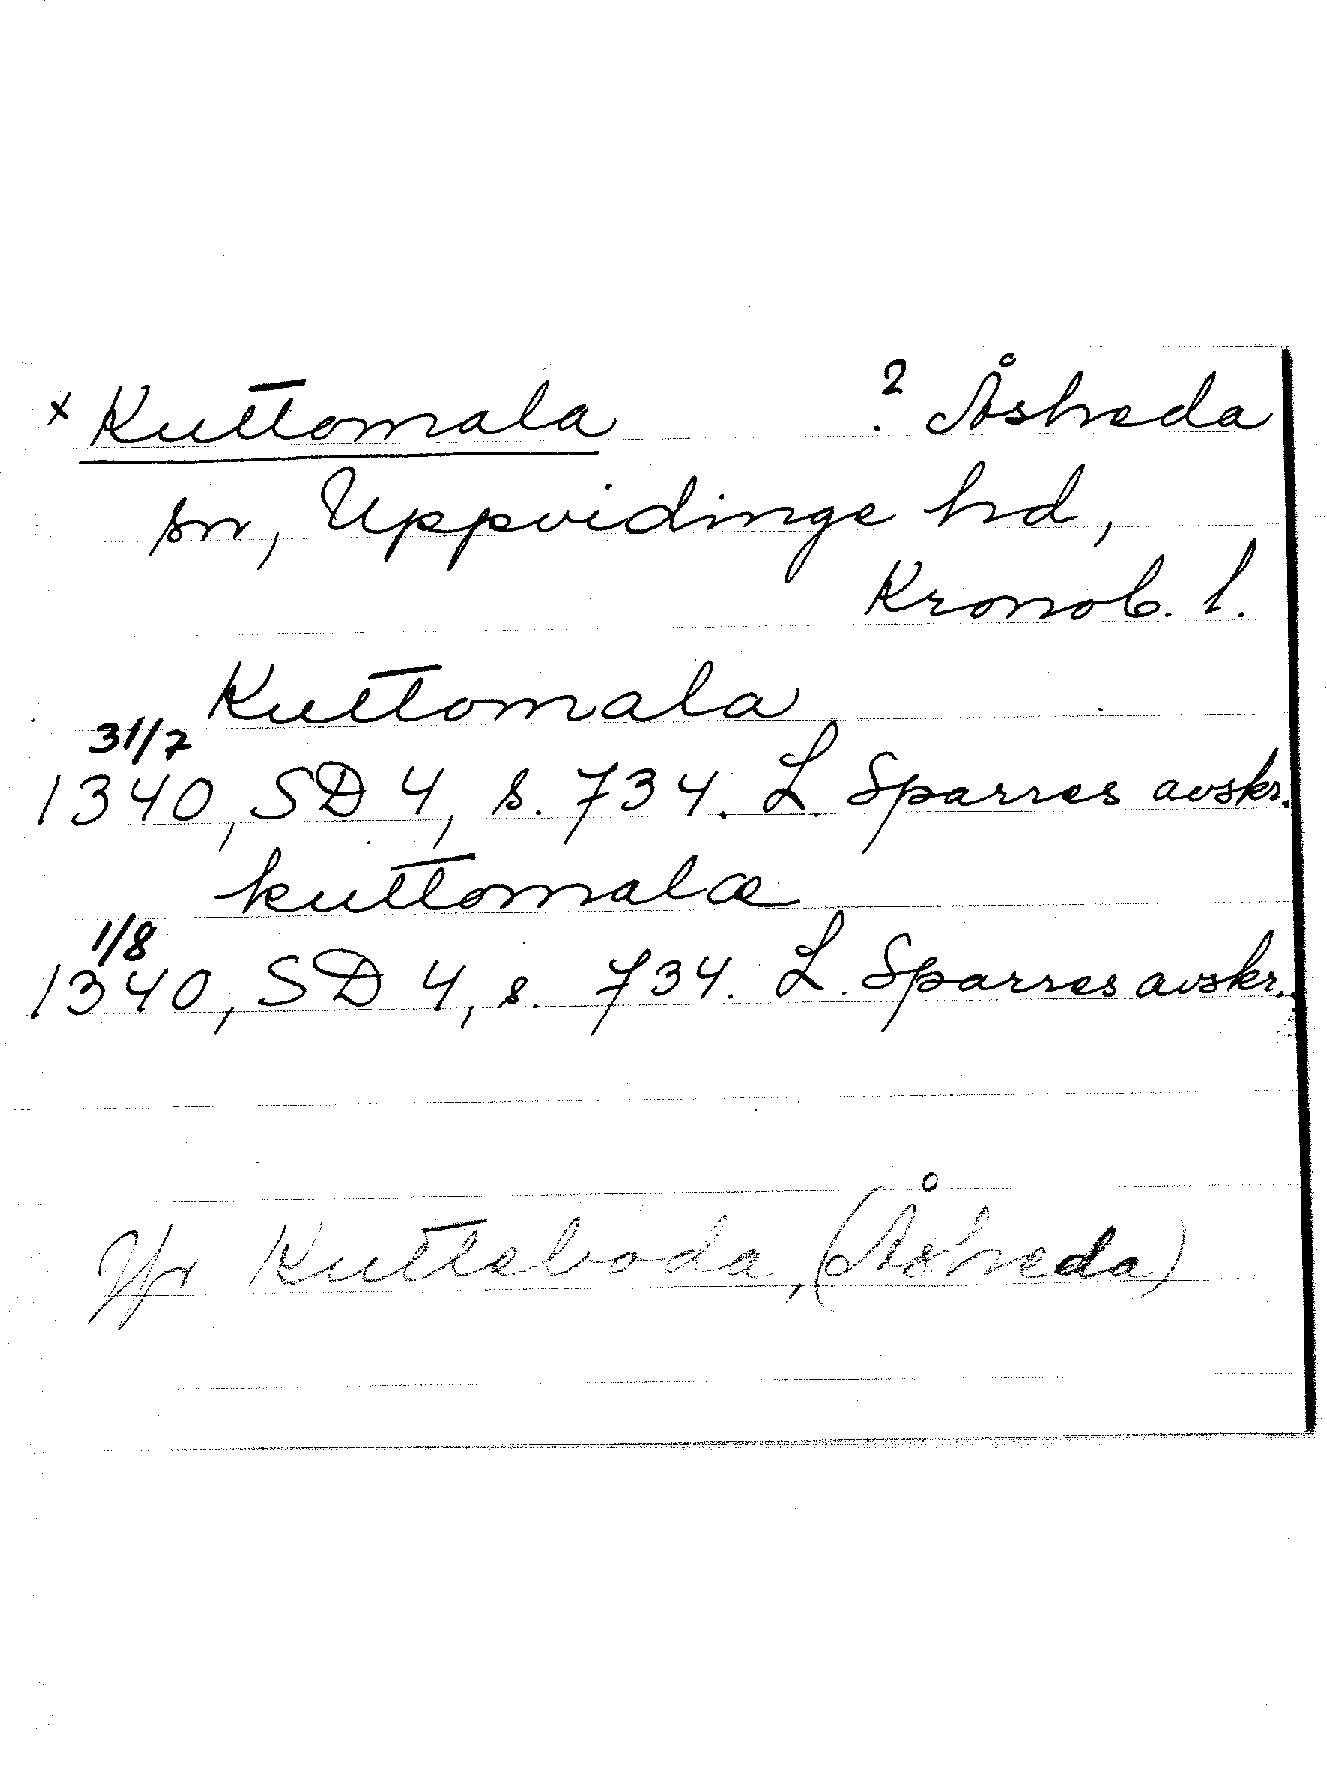 x Kuttomala ? Åsheda
sn, Uppvidinge hd,
Kronob. l.
Kuttomala
31/7
1340, SD 4, s. 734. L. Sparres avskr.
kuttomalæ
1/8
1340, SD 4, s. 734. L. Sparres avskr.
Jfr Kutteboda, (Åsheda)